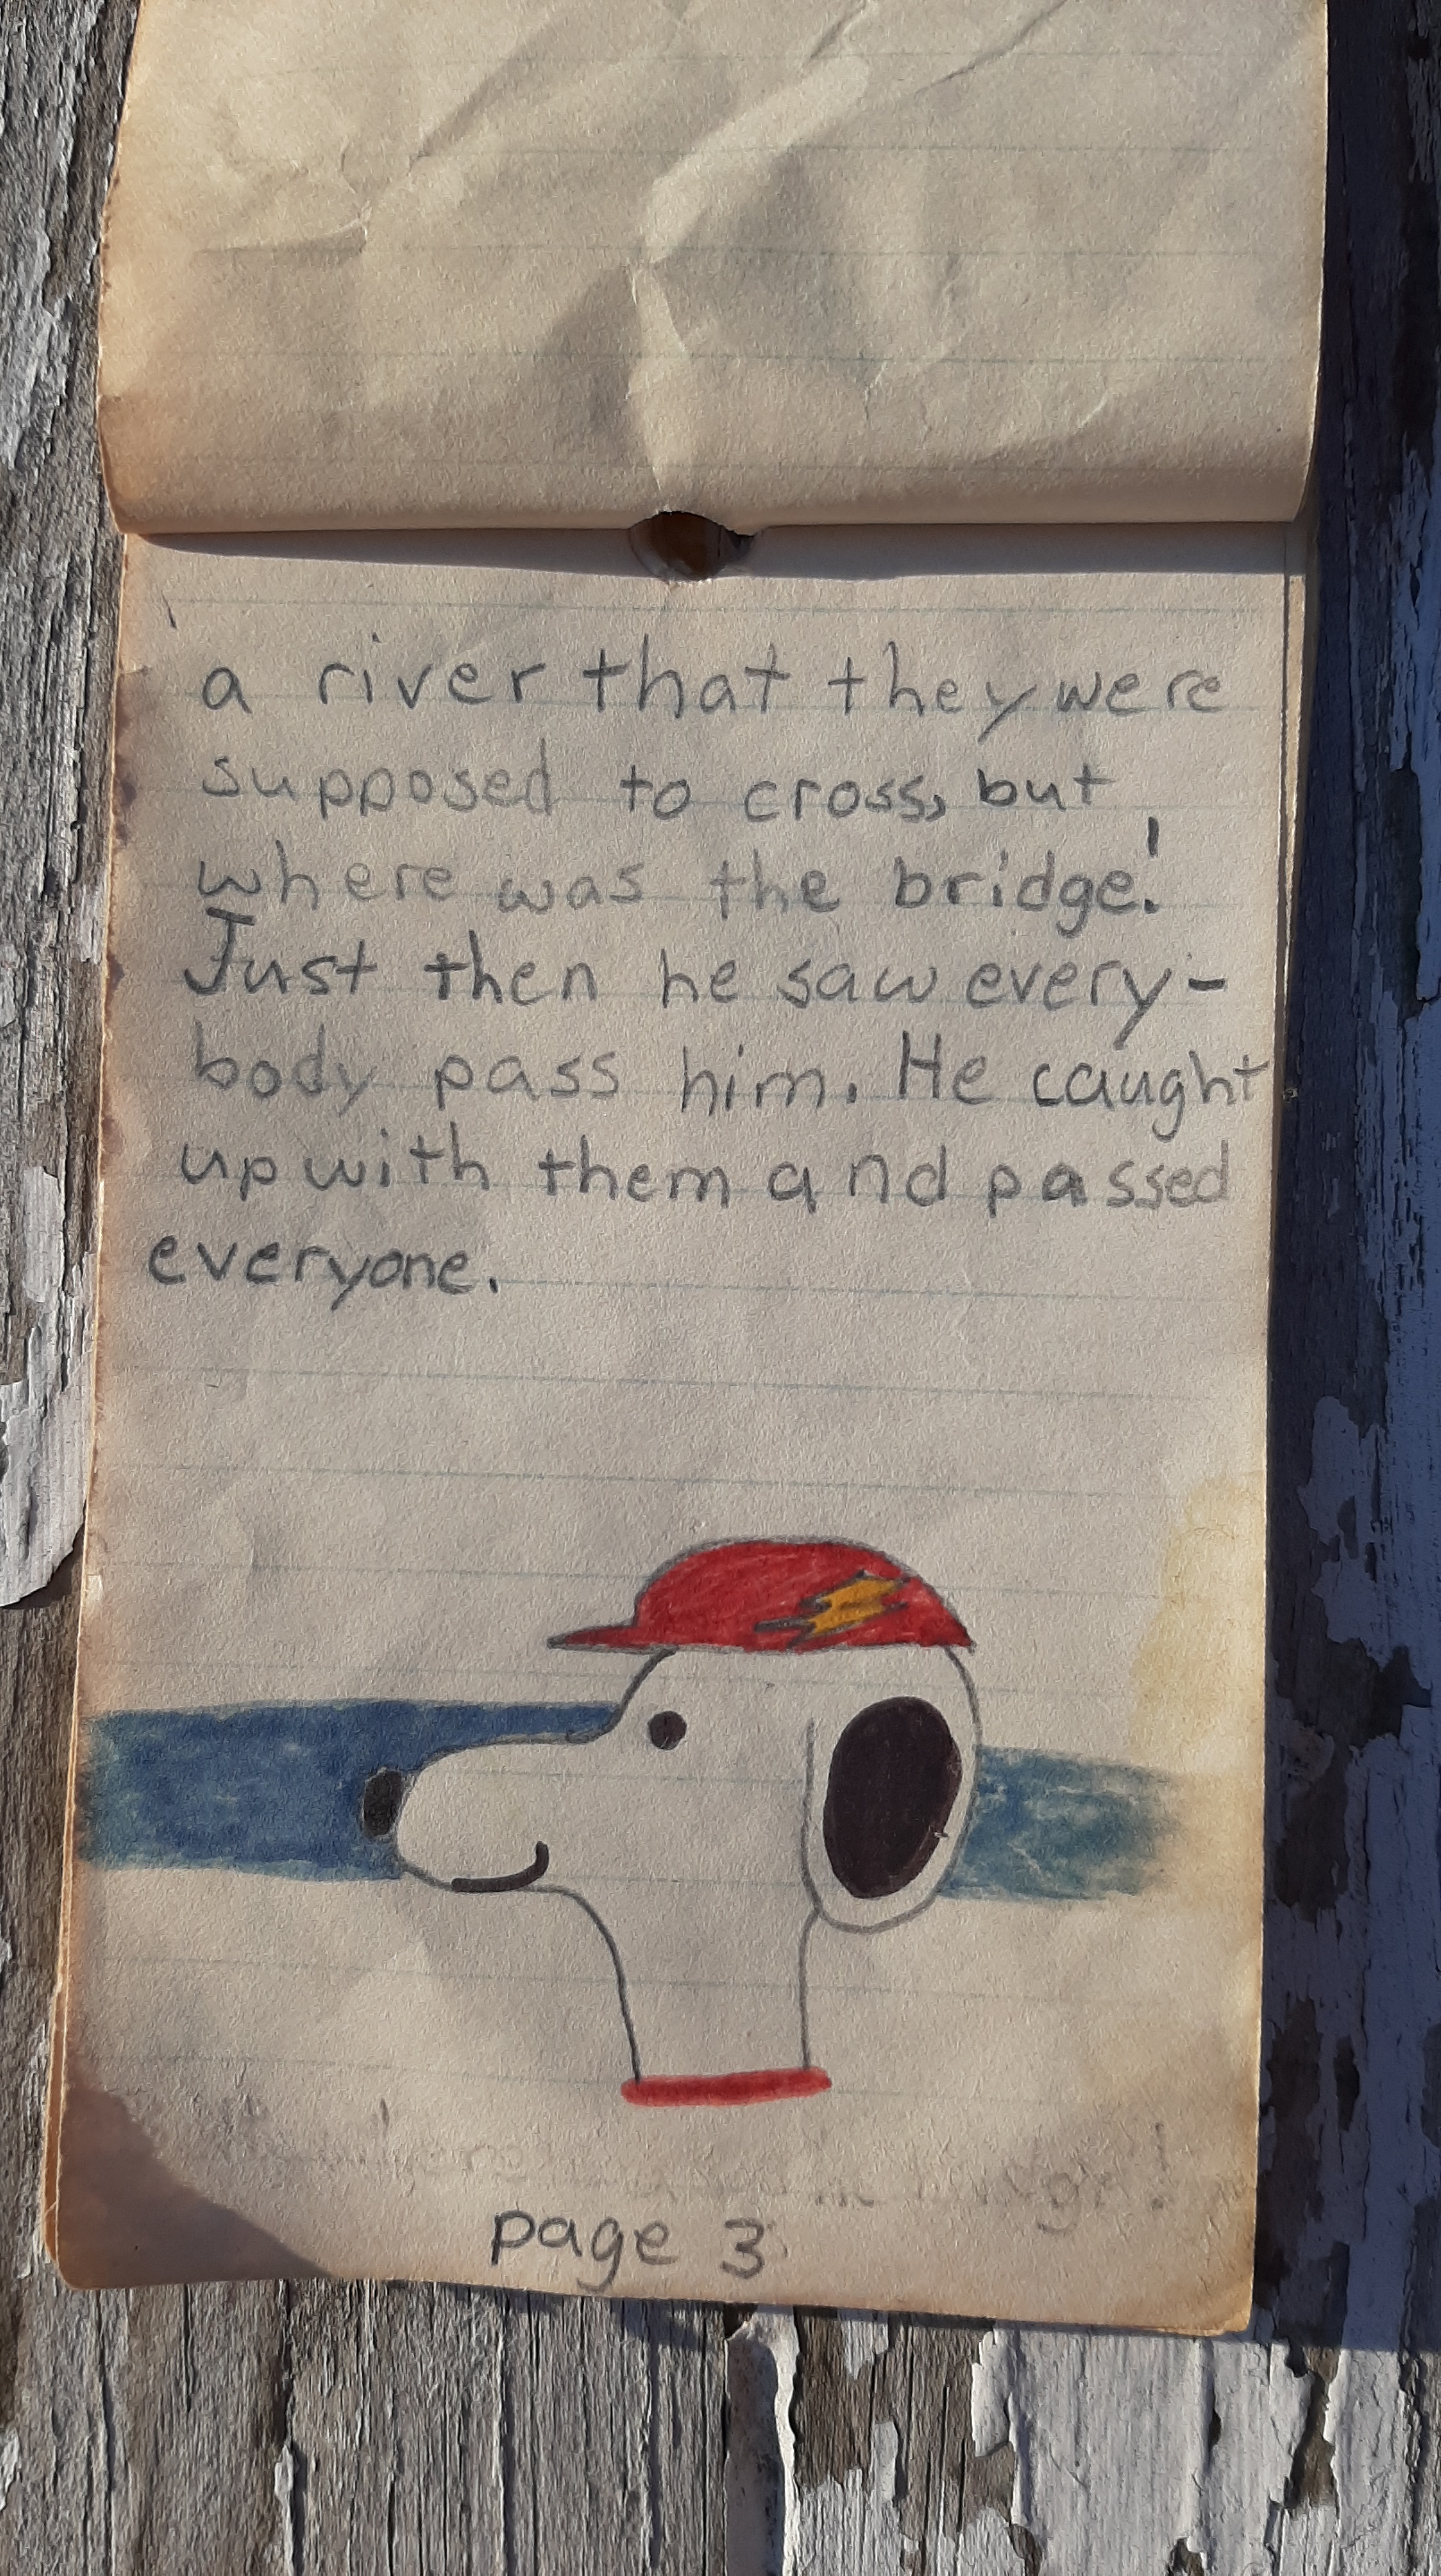 a river that they were
supposed to cross, but
where was the bridge!
Just then he saw every-
body pass him. He caught
up with them and passed
everyone.
page 3